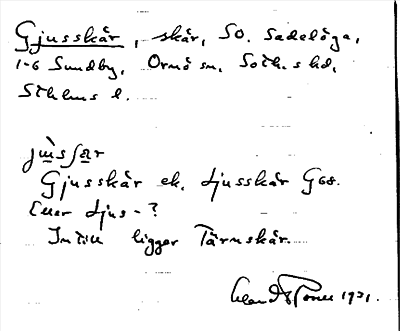 Gjusskär, skär, SO. Sadelöga,
1-6 Sundby, Ornö sn, Soth.s hd,
Sthlms l.
Gjusskär ek. Ljusskär G68.
Eller Ljus-?
Intill ligger Tärnskär.
1931.